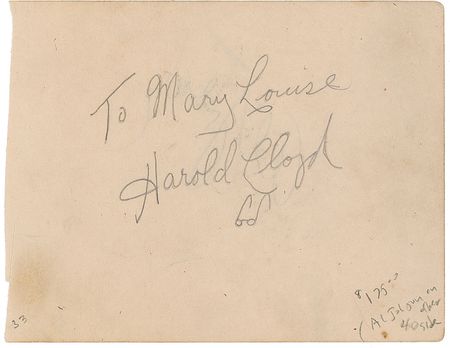 To Mary Louise
Harold Lloyd
$175.00
(Al Jolson on
other
side
33